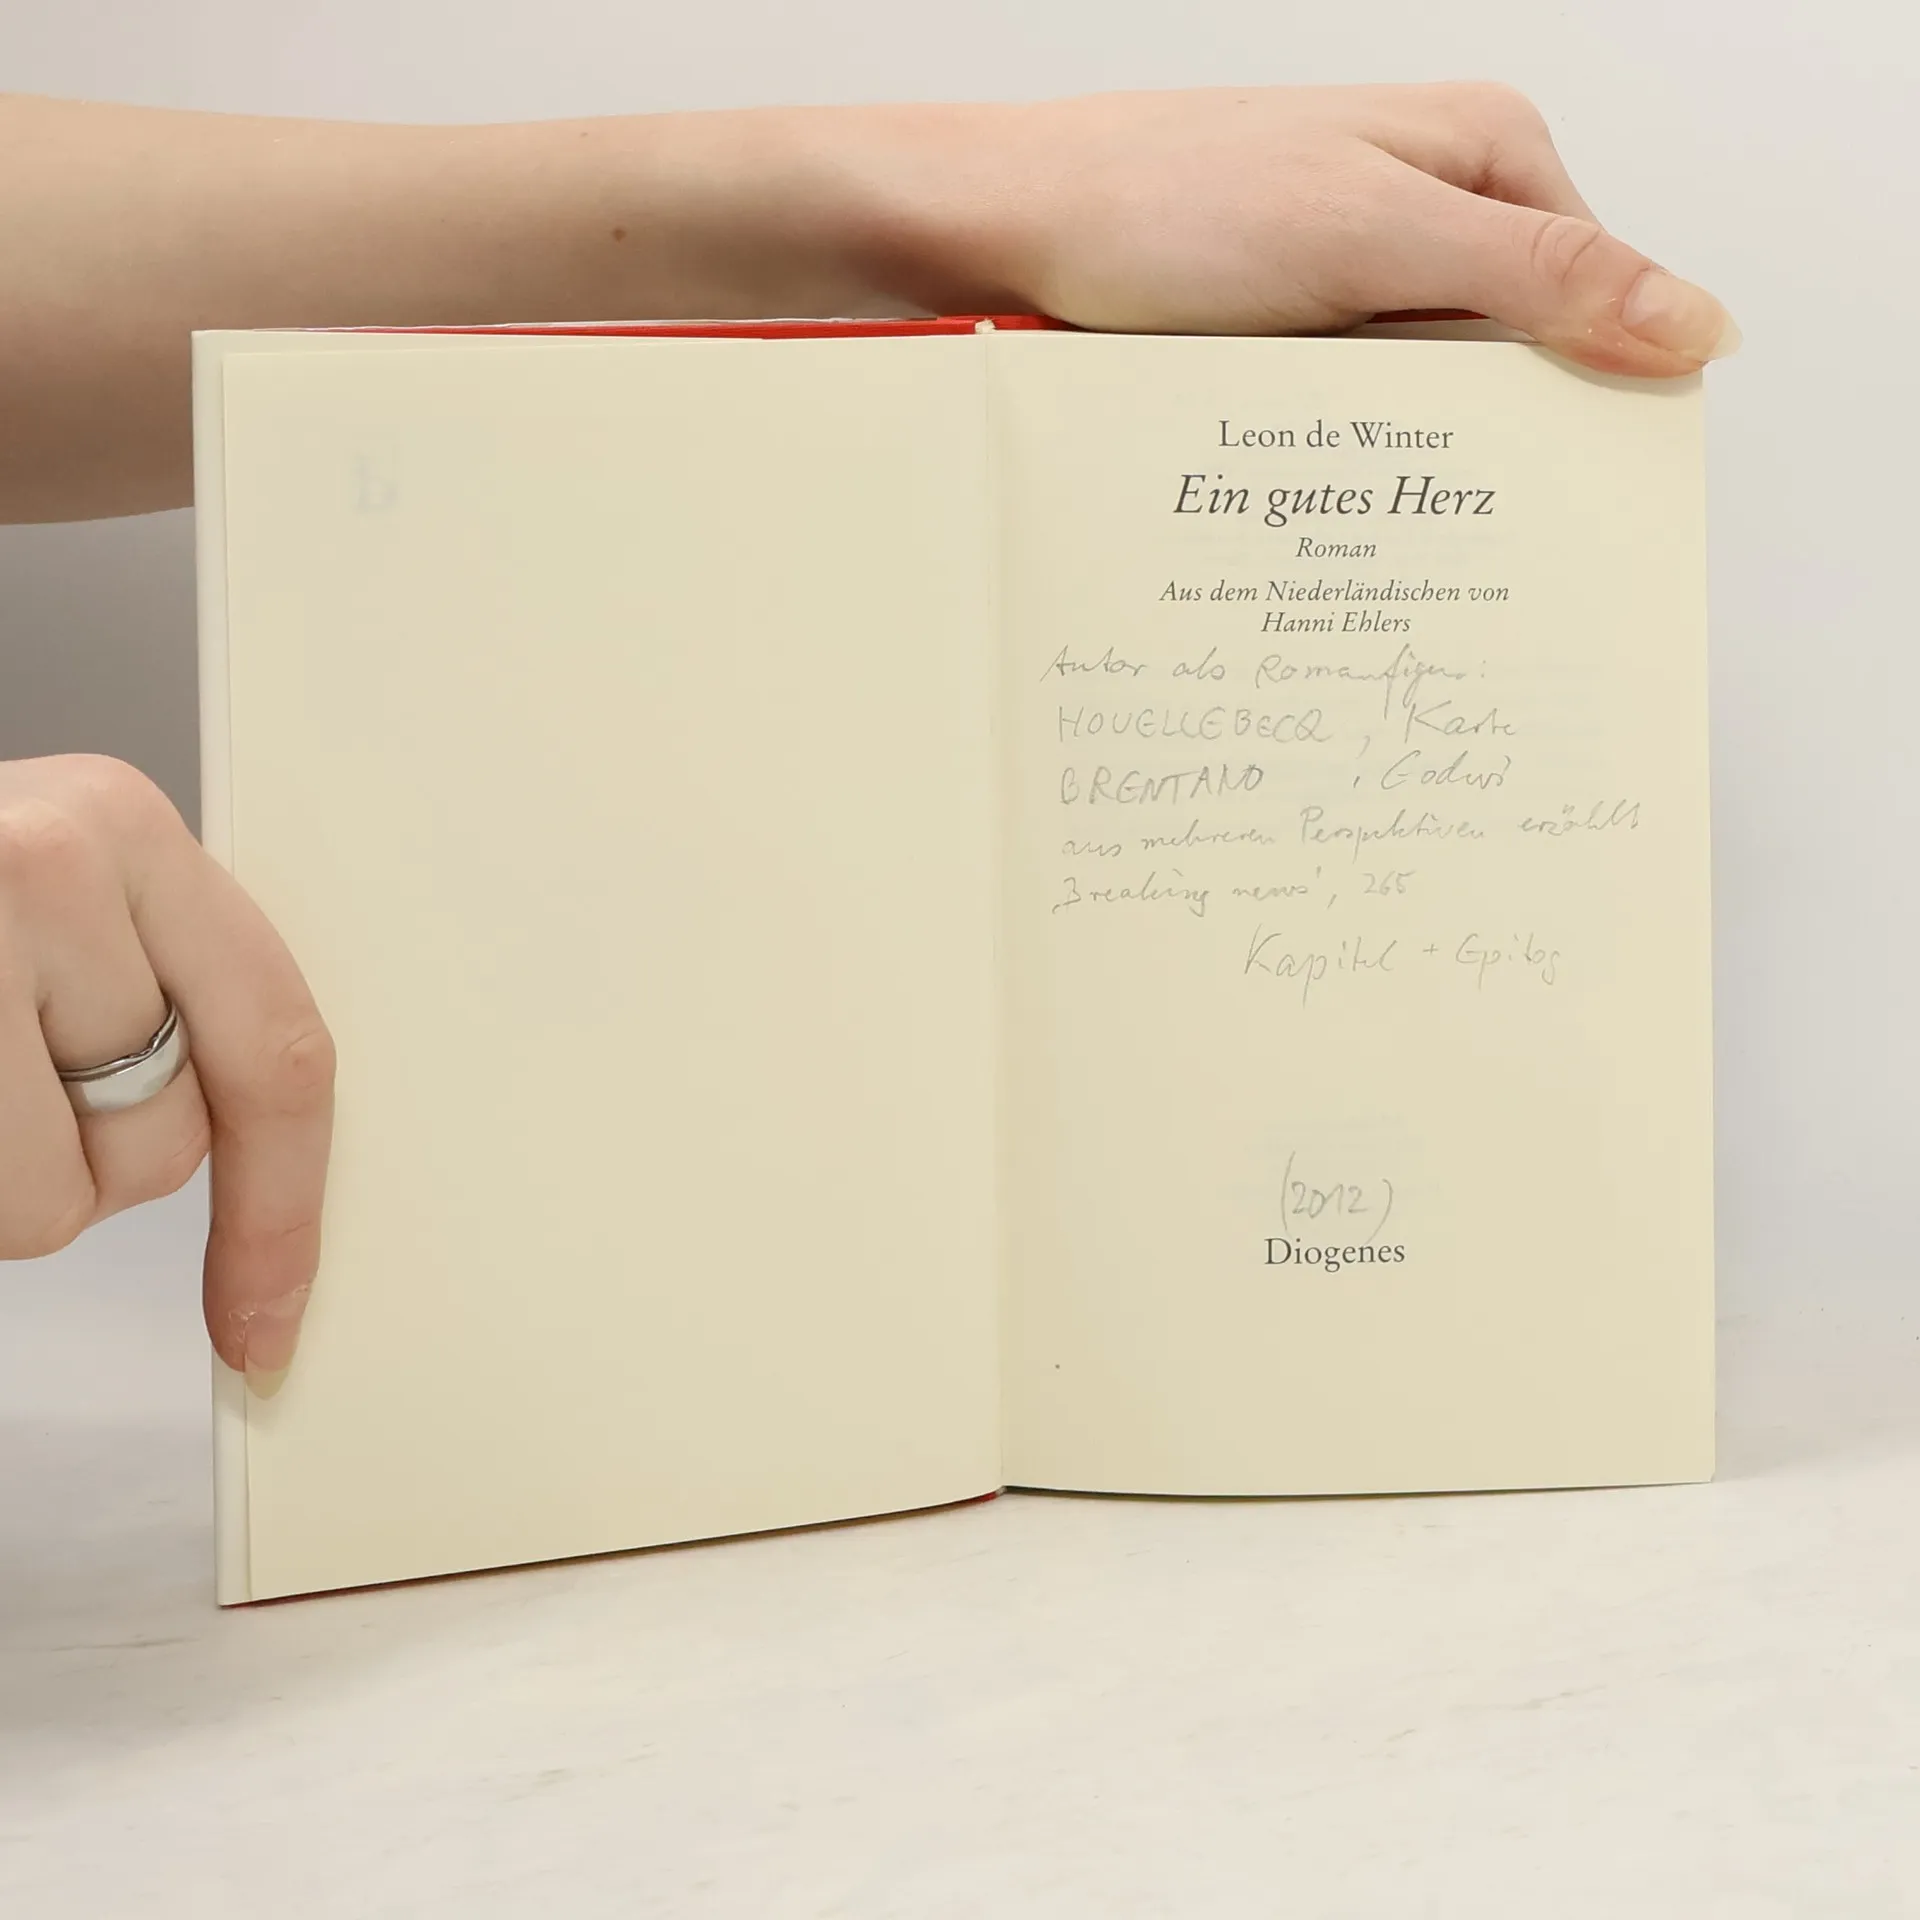 Leon de Winter
Ein gutes Herz
Roman
Aus dem Niederländischen von
Hanni Ehlers
Autor als Romanfigur:
HOUELLEBECQ, Karte
BRENTANO, Godwi
aus mehreren Perspektiven erzählt
‚Breaking news', 265
Kapitel + Epilog
(2012)
Diogenes